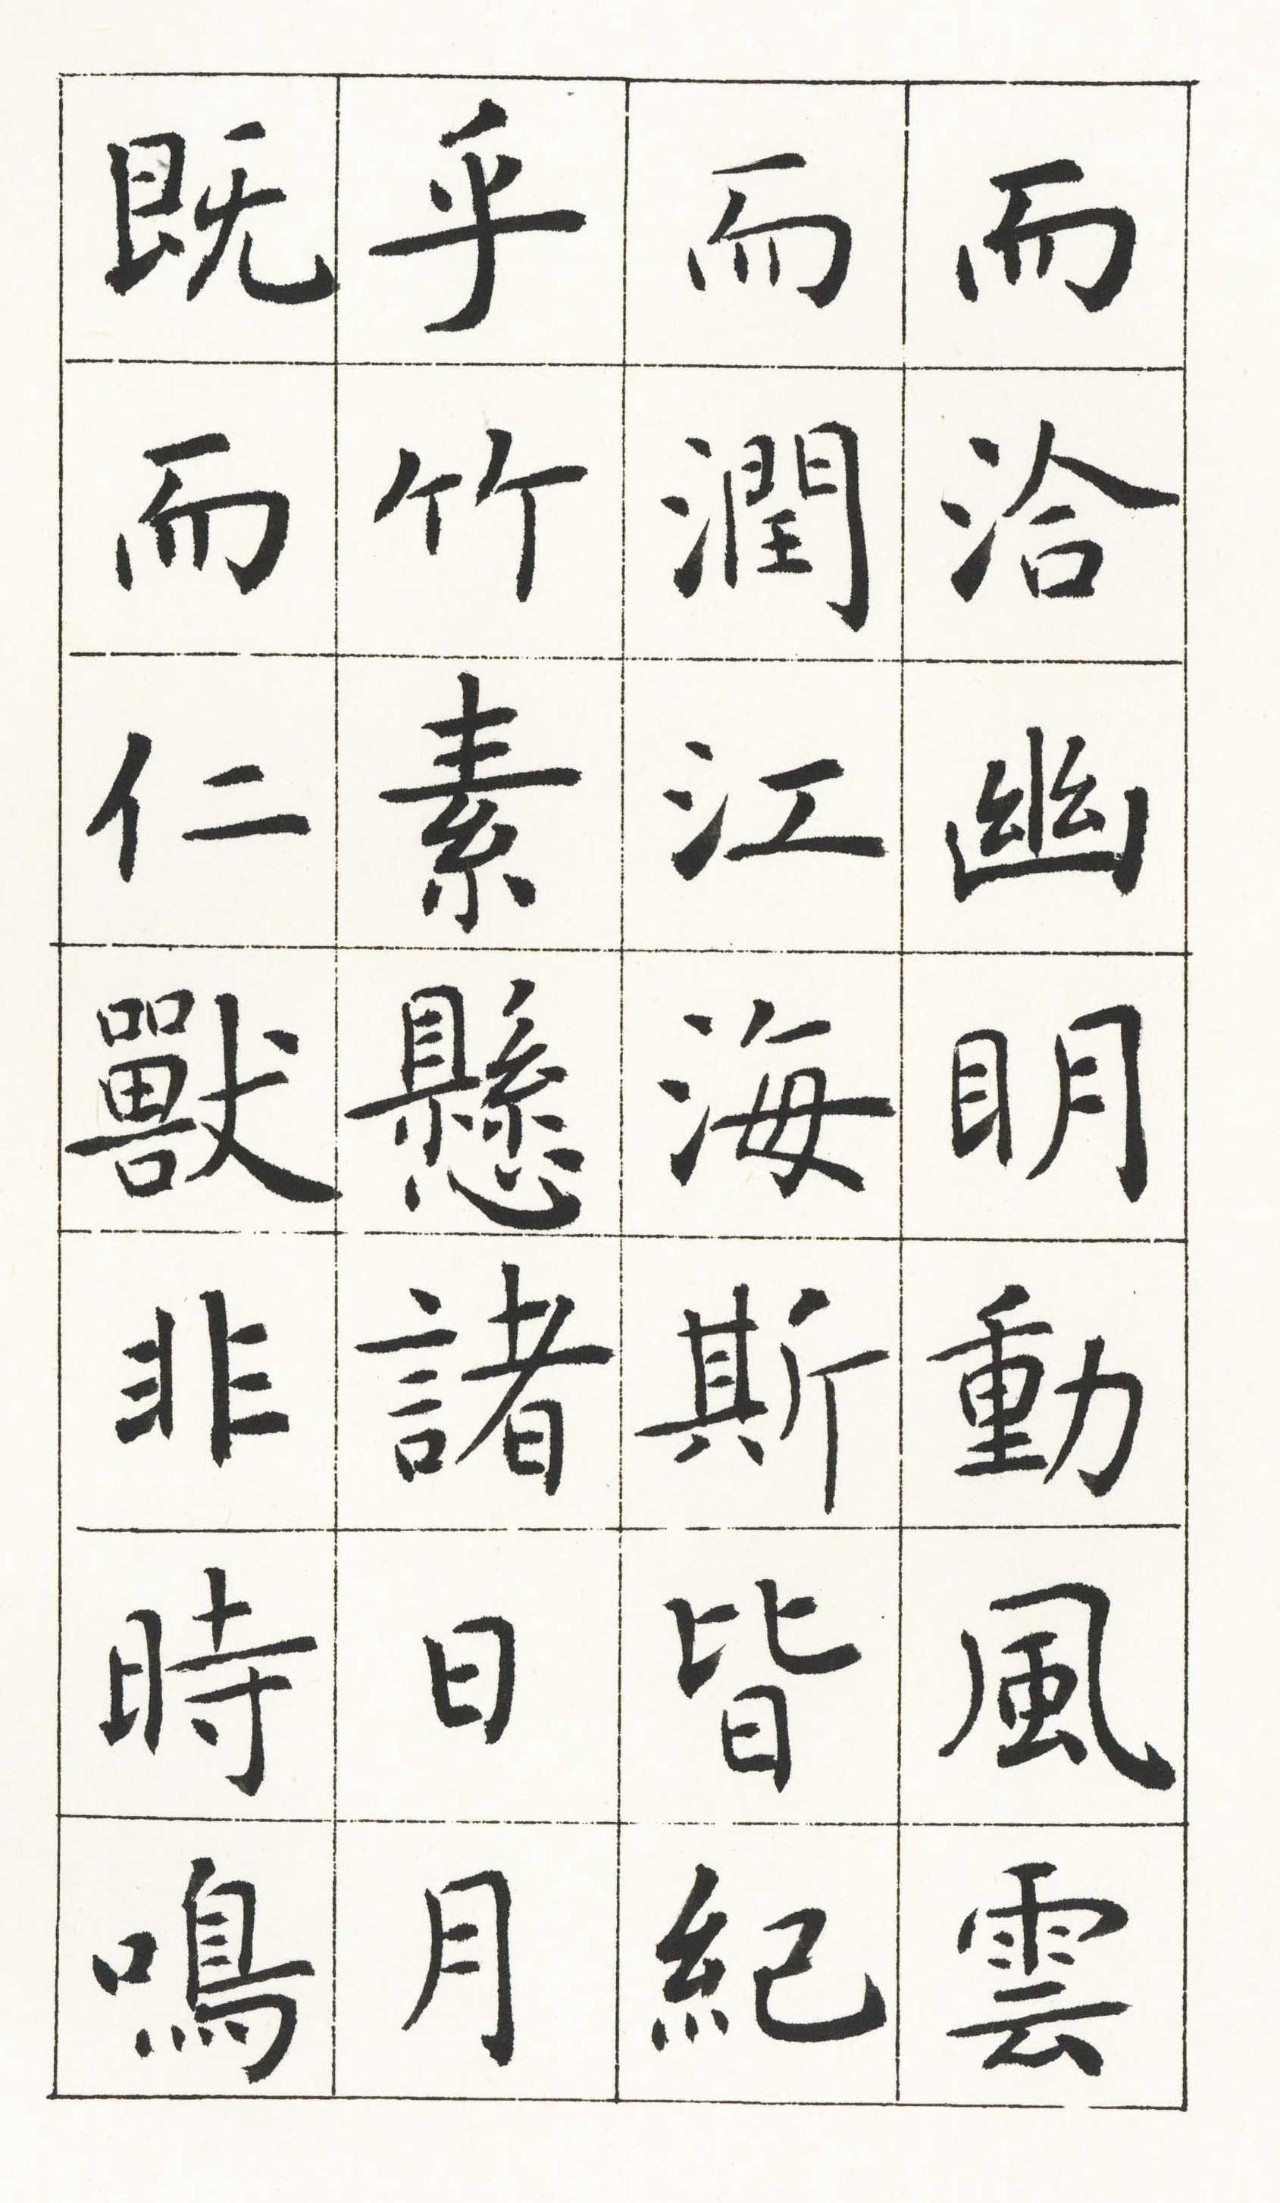 而洽幽明動風雲
而潤江海斯皆紀
乎竹素懸諸日月
既而仁獸非時鳴